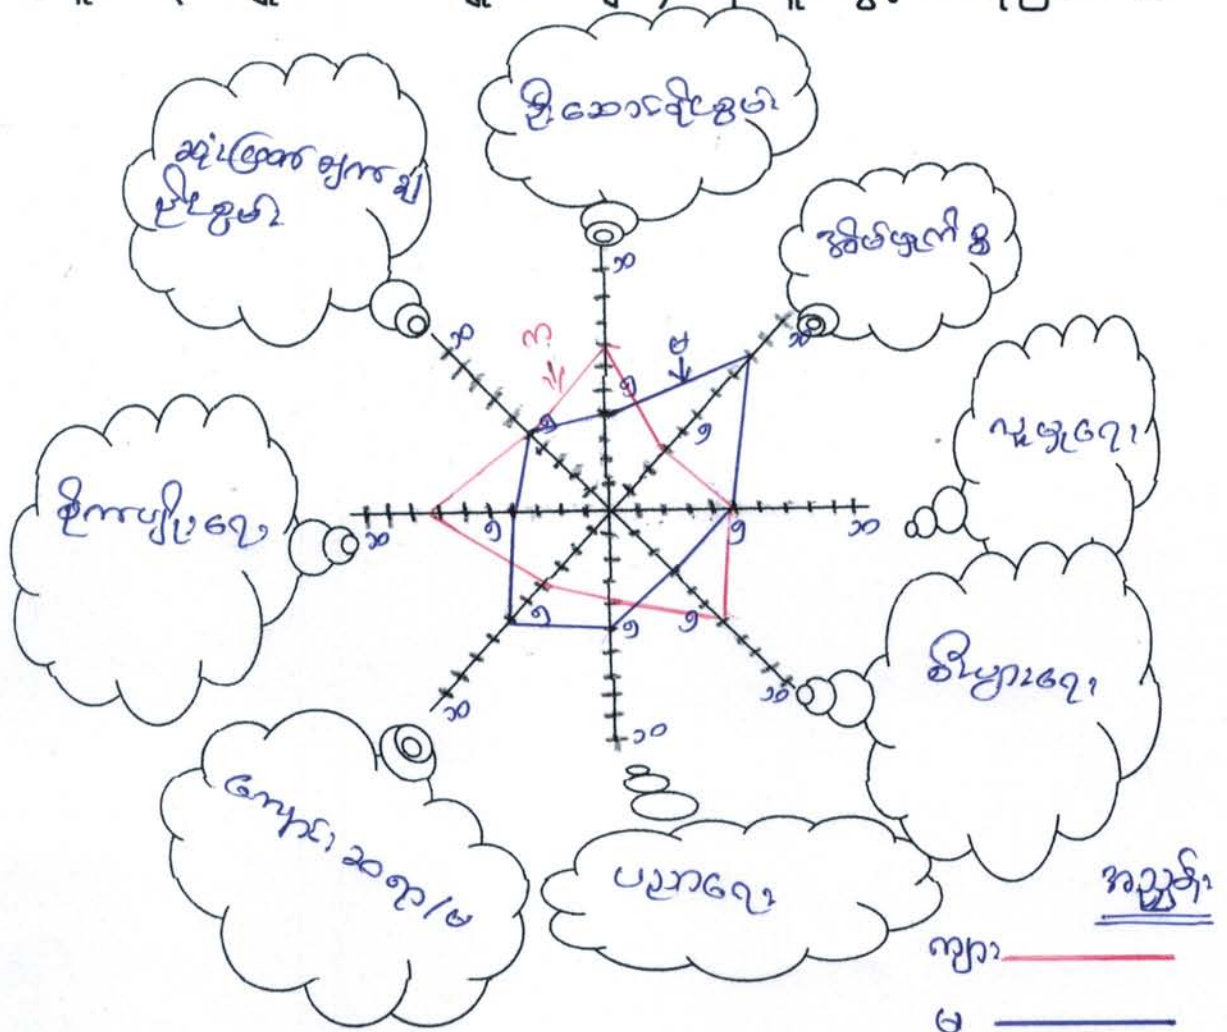 ဦးဆောင်နိုင်စွမ်း
ဆုံးဖြတ်ချက်ချ
နိုင်စွမ်း
အိမ်မှုကိစ္စ
လူမှုရေး
စီးပွားရေး
ပညာရေး
ကျောင်းဆရာ/မ
စိုက်ပျိုးရေး
၁၀
၁၀
၁၀
၁၀
၁၀
၁၀
၁၀
၁၀
၅
၅
၅
၅
၅
၅
၅
၅
က
မ
အညွှန်း
ကျား
မ